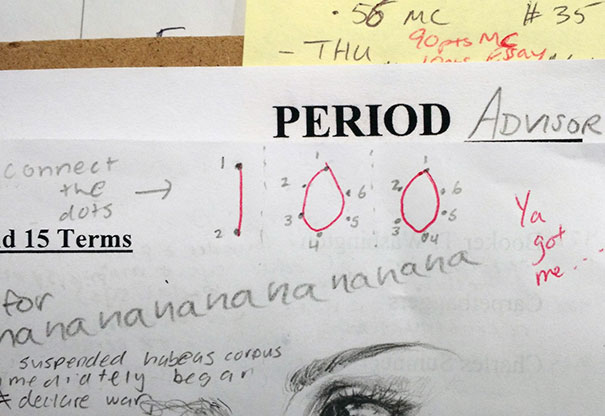 · 56 MC # 35
- THU 90pts MC
Essay
PERIOD ADVISOR
connect
the
dots →
1 2
1 2 3 4 5 6
1 2 3 4 5 6
Ya
got
me...
d 15 Terms
for
nanananananananana
suspended habeas corpus
mediately began
declare war